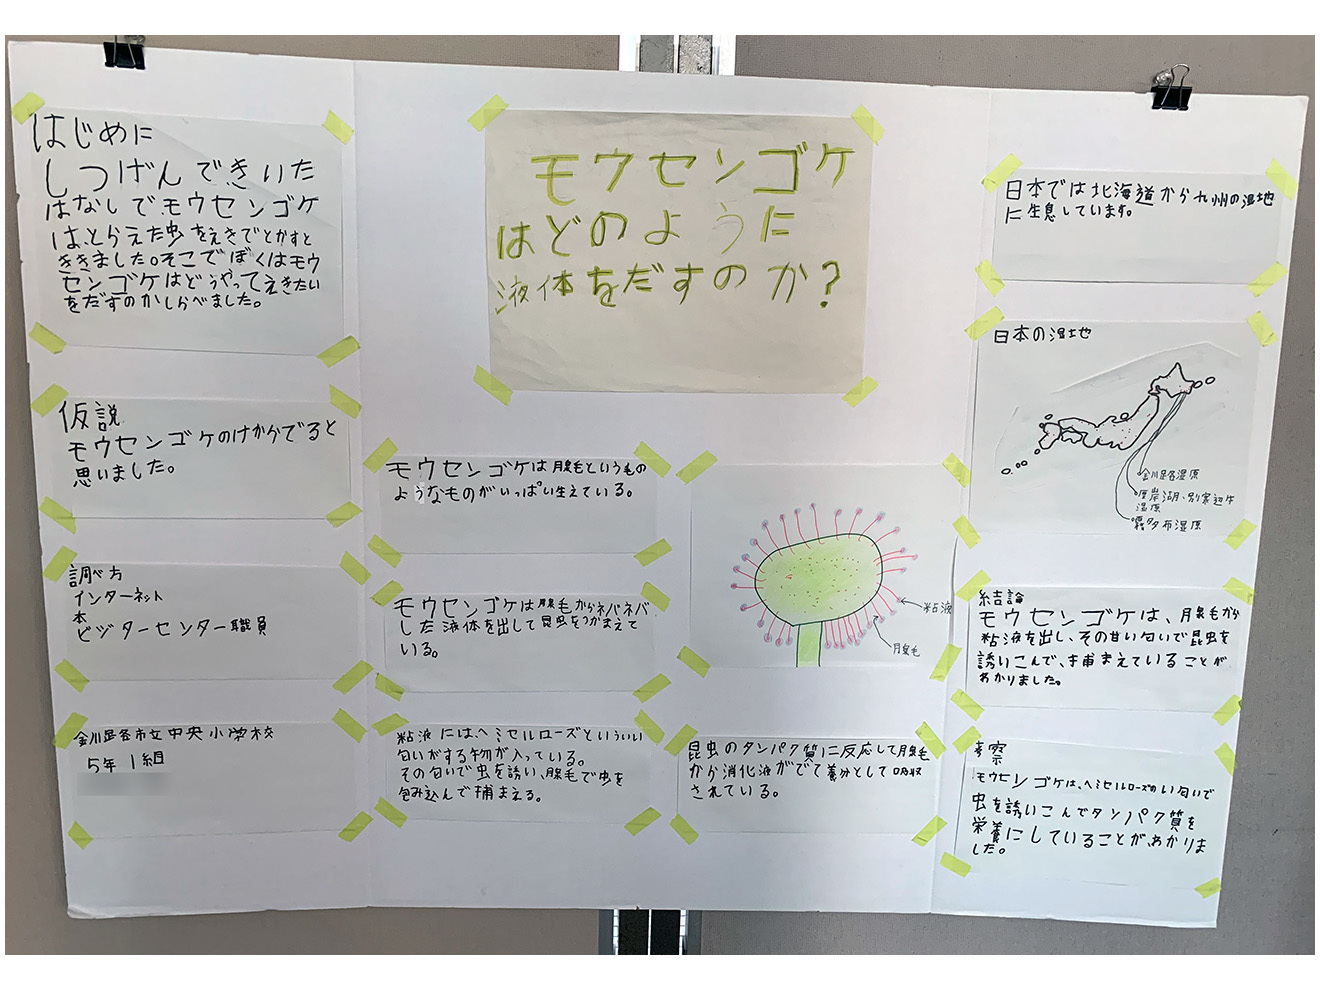 はじめに
しつげんできいた
はなしでモウセンゴケ
は、とらえた虫をえきでとかすと
ききました。そこでぼくはモウ
センゴケはどうやってえきたい
をだすのかしらべました。
仮説
モウセンゴケのけからでると
思いました。
調べ方
インターネット
本
ビジターセンター職員
釧路市立中央小学校
5年1組
モウセンゴケ
はどのように
液体をだすのか?
モウセンゴケは腺毛という毛の
ようなものがいっぱい生えている。
モウセンゴケは腺毛からネバネバ
した液体を出して昆虫をつかまえて
いる。
粘液にはヘミセルローズといういい
匂いがする物が入っている。
その匂いで虫を誘い、腺毛で虫を
包み込んで捕まえる。
粘液
腺毛
昆虫のタンパク質に反応して腺毛
から消化液がでて養分として吸収
されている。
日本では北海道から九州の湿地
に生息しています。
日本の湿地
釧路湿原
厚岸湖、別寒辺牛
湿原
霧多布湿原
結論
モウセンゴケは、腺毛から
粘液を出し、その甘い匂いで昆虫を
誘いこんで、捕まえていることが
わかりました。
考察
モウセンゴケは、ヘミセルローズのいい匂いで
虫を誘いこんでタンパク質を
栄養にしていることがわかりま
した。